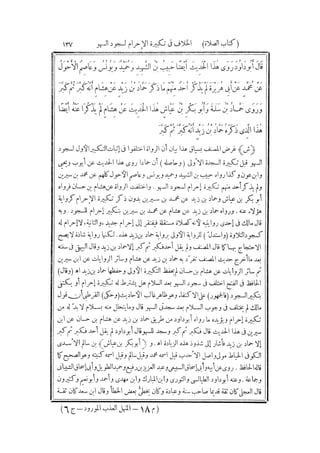 (كتاب الصلاة) الخلاف فى تكبيرة الإحرام لسجود السهو ١٣٧
قَالَ أَبُو دَاوُدَ رَوَى هَذَا الْحَدِيثَ أَيْضًا حَبِيبُ بْنُ الشَّهِيدِ وَحُمَيْدٌ وَيُونُسُ وَعَاصِمٌ الْأَحْوَلُ
عَنْ مُحَمَّدٍ عَنْ أَبِي هُرَيْرَةَ لَمْ يَذْكُرْ أَحَدٌ مِنْهُمْ مَا ذَكَرَ حَمَّادُ بْنُ زَيْدٍ عَنْ هِشَامٍ أَنَّهُ كَبَّرَ ثُمَّ كَبَّرَ
وَرَوَى حَمَّادُ بْنُ سَلَمَةَ وَأَبُو بَكْرِ بْنُ عَيَّاشٍ هَذَا الْحَدِيثَ عَنْ هِشَامٍ لَمْ يَذْكُرَا عَنْهُ أَيْضًا
هَذَا الَّذِي ذَكَرَهُ حَمَّادُ بْنُ زَيْدٍ أَنَّهُ كَبَّرَ ثُمَّ كَبَّرَ
(ش) غرض المصنف بسياق هذا بيان أن الرواة اختلفوا فى إثبات التكبير الأول لسجود
السهو قبل تكبيرة السجدة الأولى (وحاصله) أن حمادا روى هذا الحديث عن أيوب ويحيى
وابن عون وكذا رواه حبيب بن الشهيد وحميد ويونس وعاصم الأحول كلهم عن محمد بن سيرين
ولم يذكر أحد منهم تكبيرة إحرام لسجود السهو. واختلفت الرواة عن هشام بن حسان فرواه
أبو بكر بن عياش وحماد بن زيد عن محمد بن سيرين بدون ذكر تكبيرة الإحرام كرواية
هؤلاء عنه. ورواه حماد بن زيد عن هشام عن محمد بن سيرين بتكبير إحرام للسجود. وبه
قال مالك فى إحدى روايتيه لأنه كصلاة مستقلة فيفتقر إلى إحرام جديد والثانية، لا إحرام له
كسجود التلاوة (واستدل) للرواية الأولى برواية حماد بن زيد هذه. لكنها رواية شاذة لا يصح
الاحتجاج بها كما قال المصنف ولم يقل أحد فكبر ثم كبر إلا حماد بن زيد وقال البيهقى فى سننه
بعد ما أخرج حديث المصنف تفرد به حماد بن زيد عن هشام وسائر الروايات عن ابن سيرين
ثم سائر الروايات عن هشام بن حسان لم يحفظ التكبيرة الأولى وحفظها حماد بن زيد اه (وقال)
الحافظ فى الفتح اختلف فى سجود السهو بعد السلام هل يشترط له تكبيرة إحرام أو يكتفى
بتكبير السجود (فالجمهور) على الاكتفاء وهو ظاهر غالب الأحاديث (وحكى) القرطبى أن قول
مالك لم يختلف فى وجوب السلام بعد سجدتى السهو قال وما يتحلل منه بسلام لا بد له من
تكبيرة إحرام ويؤيده ما رواه أبو داود من طريق حماد بن زيد عن هشام بن حسان عن ابن
سيرين فى هذا الحديث قال فكبر ثم كبر وسجد للسهو قال أبو داود لم يقل أحد فكبر ثم كبر
إلا حماد بن زيد فأشار إلى شذوذ هذه الزيادة اه. و (أبو بكر بن عياش) بن سالم الأسدى
الكوفى الحناط مولى واصل الأحدب قيل اسمه محمد وقيل سالم وقيل اسمه كنيته وهو الصحيح كما
قاله الحافظ. روى عن أبيه وأبى إسحاق السبيعى وعبد العزيز بن رفيع وحميد الطويل وأبى إسحاق الشيبانى
وجماعة. وعنه أبو داود الطيالسى والثورى وابن المبارك وابن مهدى وأحمد وأبو نعيم وكثيرون
قال العجلى كان ثقة قديما صاحب سنة وعبادة وكان يخطئ بعض الخطأ وقال ابن سعد كان ثقة
(م ١٨ - المنهل العذب المورود - ج ٦)